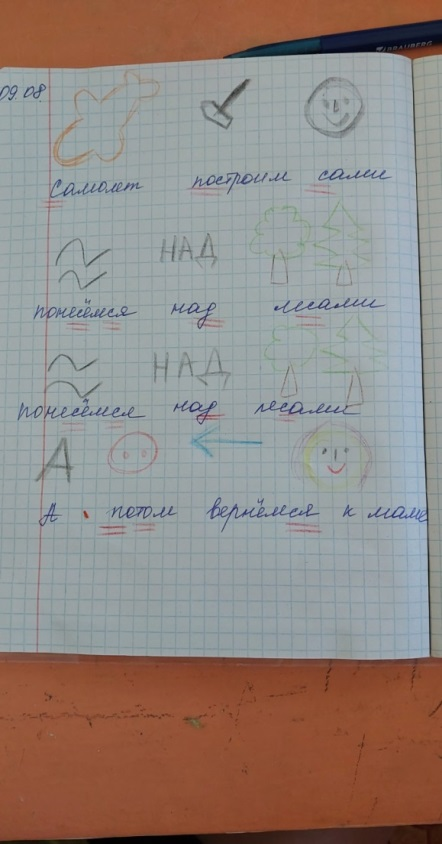 09.08
Самолет построим сами
НАД
понесёмся над лесами
НАД
понесёмся над лесами
А
А потом вернёмся к маме